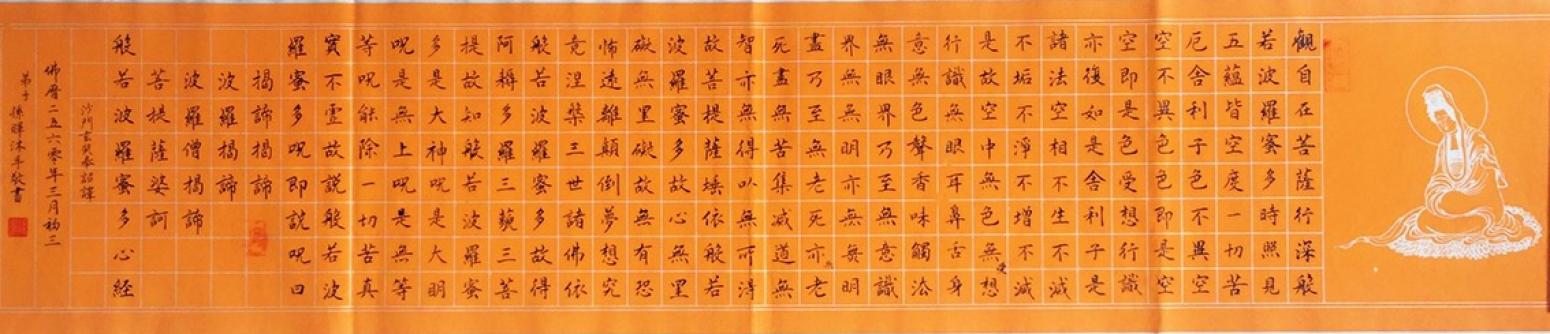 觀自在菩薩行深般
若波羅蜜多時照見
五蘊皆空度一切苦
厄舍利子色不異空
空不異色色即是空
空即是色受想行識
亦復如是舍利子是
諸法空相不生不滅
不垢不淨不增不減
是故空中無色無受想
行識無眼耳鼻舌身
意無色聲香味觸法
無眼界乃至無意識
界無無明亦無無明
盡乃至無老死亦無老
死盡無苦集滅道無
智亦無得以無所得
故菩提薩埵依般若
波羅蜜多故心無罣
礙無罣礙故無有恐
怖遠離顛倒夢想究
竟涅槃三世諸佛依
般若波羅蜜多故得
阿耨多羅三藐三菩
提故知般若波羅蜜
多是大神呪是大明
呪是無上呪是無等
等呪能除一切苦真
實不虛故說般若波
羅蜜多呪即說呪曰
揭諦揭諦
波羅揭諦
波羅僧揭諦
菩提薩婆訶
般若波羅蜜多心經
沙門玄奘奉詔譯
佛曆二五六零年三月初三
弟子孫暉沐手敬書